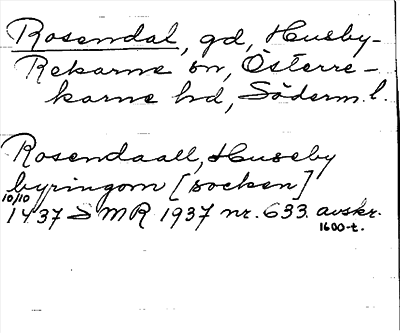 Rosendal, gd, Husby-
Rekarne sn, Österre-
karne hd, Söderm.l.
Rosendaall, Huseby
byringom [socken]
10/10
1437 SMR 1937 nr. 633. avskr.
1600-t.